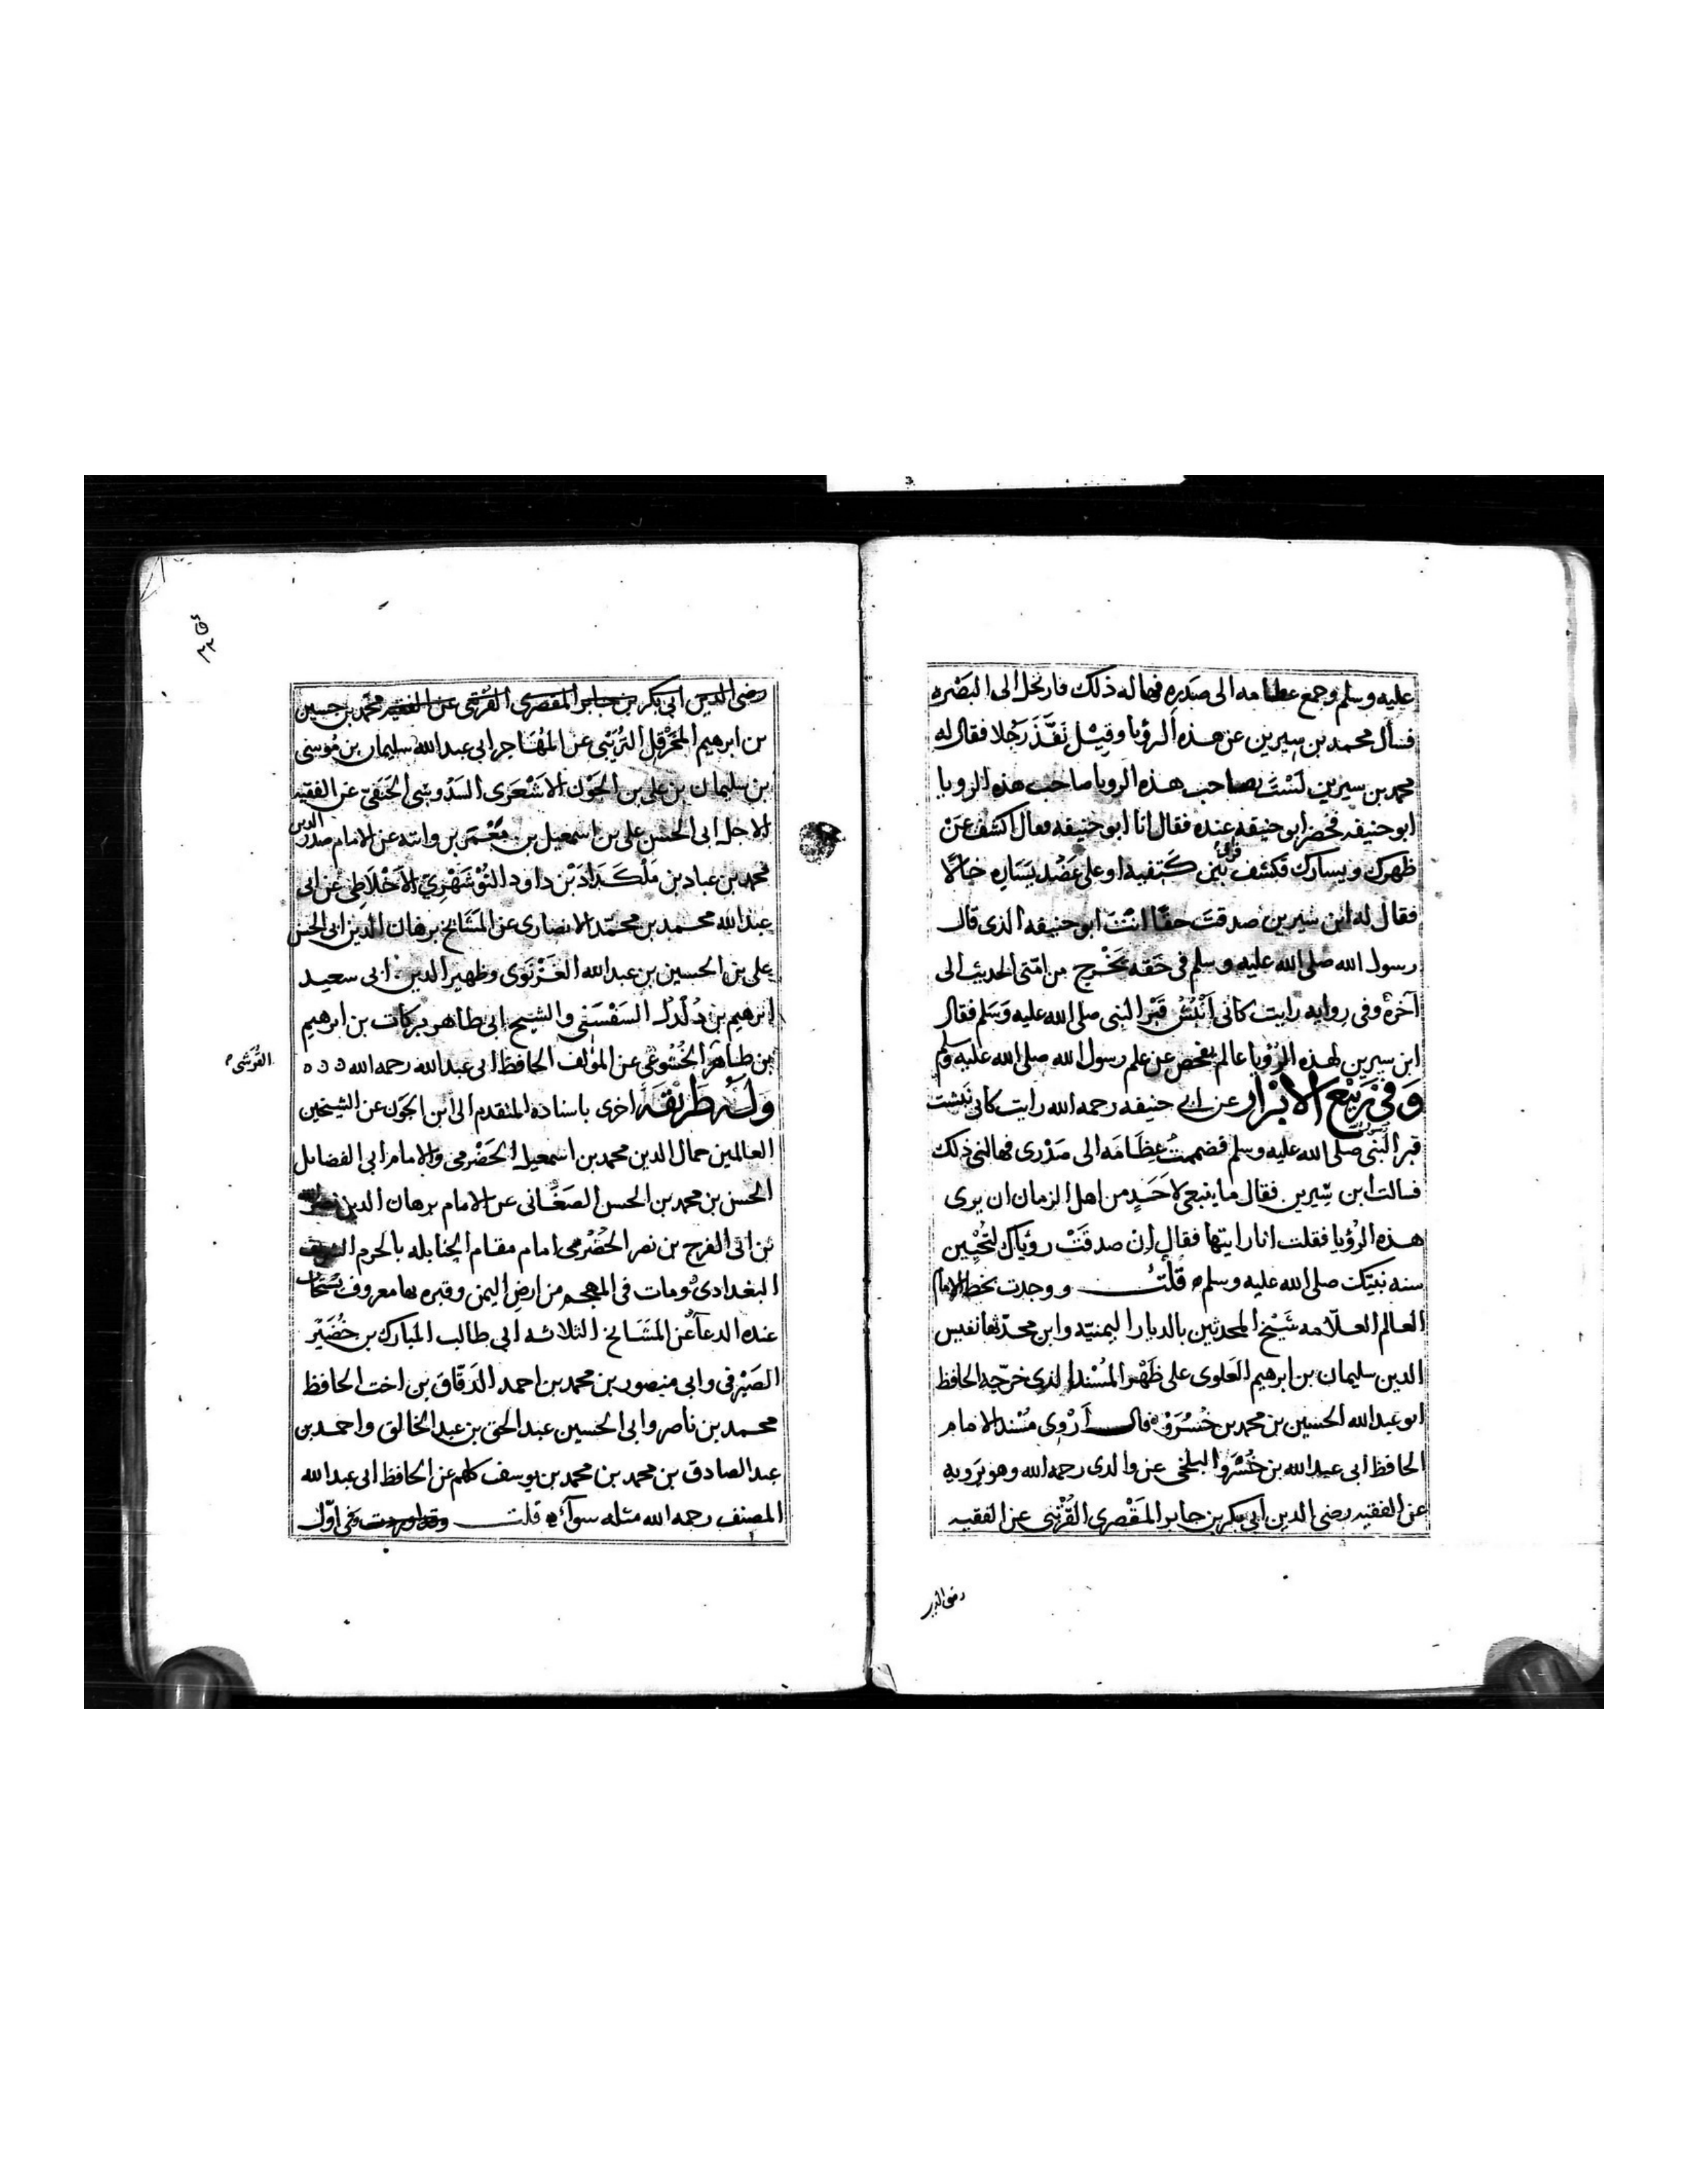 عليه وسلم وجمع عظامه الى صدره فهاله ذلك فارتحل الى البصره
فسأل محمد بن سيرين عن هذه الرؤيا وقيل نفذ رجلا فقال له
محمد بن سيرين لست بصاحب هذه الرويا صاحب هذه الرويا
ابو حنيفه فحضر ابو حنيفه عنده فقال انا ابو حنيفه فقال اكشف عن
ظهرك ويسارك فكشف بين كتفيه او على عضد يساره خالا
فقال له ابن سيرين صدقت حقا انت ابو حنيفه الذى قال
رسول الله صلى الله عليه وسلم فى حقه يخرج من امتى الحديث الى
آخره وفى روايه رايت كانى انبش قبر النبى صلى الله عليه وسلم فقال
ابن سيرين لهذه الرؤيا عالم يفحص عن علم رسول الله صلى الله عليه وسلم
وفى ربيع الابرار عن ابى حنيفه رحمه الله رايت كانى نبشت
قبر النبى صلى الله عليه وسلم فضممت عظامه الى صدرى فهالنى ذلك
فسالت ابن سيرين فقال ما ينبغى لاحد من اهل الزمان ان يرى
هذه الرؤيا فقلت انا رايتها فقال ان صدقت رؤياك لتحيين
سنه نبيك صلى الله عليه وسلم ه قلت ووجدت بخط الامام
العالم العلامه شيخ المحدثين بالديار اليمنيه وابن محدثها نفيس
الدين سليمان بن ابرهيم العلوى على ظهر المسند الذى خرجه الحافظ
ابو عبد الله الحسين بن محمد بن خسرو قال اروى مسند الامام
الحافظ ابى عبد الله بن خسرو البلخى عن والدى رحمه الله وهو يرويه
عن الفقيه رضى الدين ابى بكر بن جابر المقصرى القرتبى عن الفقيه
رضى الدين
رضى الدين ابى بكر بن جابر المقصرى القرتبى عن الفقيه محمد بن حسين
بن ابرهيم التربتى عن المهاجر ابى عبد الله سليمان بن موسى
بن سليمان بن على بن الجون الاشعرى السدوسى الحنفى عن الفقيه
الاجل ابى الحسن على بن اسمعيل بن معمر بن عن الامام صدر الدين
محمد بن عباد بن ملكداد بن داود الاخلاطى عن ابى
عبد الله محمد بن محمد الانصارى عن المشايخ برهان الدين ابى الحسن
على بن الحسين بن عبد الله الغزنوى وظهير الدين ابى سعيد
ابرهيم بن دلدرك السفسفى والشيخ ابى طاهر بركات بن ابرهيم
بن طاهر الخشوعى عن المؤلف الحافظ ابى عبد الله رحمه الله
القرشى
وله طريقه اخرى باسناده المتقدم الى ابن الجون عن الشيخين
العالمين جمال الدين محمد بن اسمعيل الحضرمى والامام ابى الفضايل
الحسن بن محمد بن الحسن الصغانى عن الامام برهان الدين
بن ابى الفرج بن نصر الحضرمى امام مقام الحنابله بالحرم الشريف
البغدادى ومات فى المهجم من ارض اليمن وقبره بها معروف يستجاب
عنده الدعاء عن المشايخ الثلاثه ابى طالب المبارك بن خضير
الصيرفى وابى منصور بن محمد بن احمد الدقاق بن اخت الحافظ
محمد بن ناصر وابى الحسين عبد الحق بن عبد الخالق واحمد بن
عبد الصادق بن محمد بن محمد بن يوسف كلهم عن الحافظ ابى عبد الله
المصنف رحمه الله مثله سواء قلت وقد اوردت فى اول